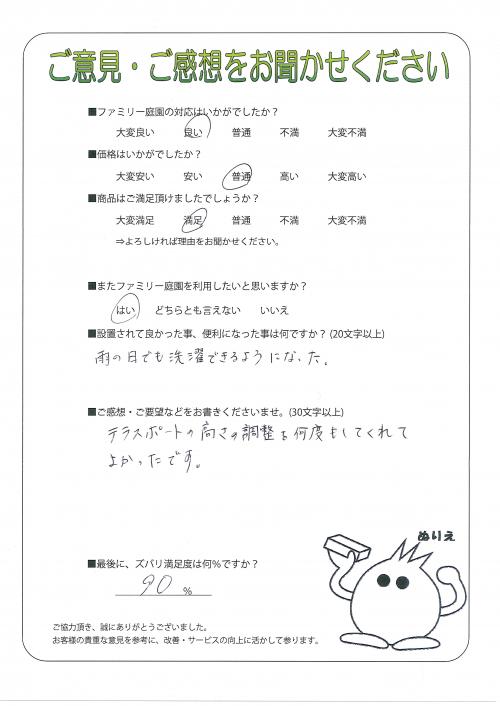 ご意見・ご感想をお聞かせください
■ファミリー庭園の対応はいかがでしたか？
大変良い 良い 普通 不満 大変不満
■価格はいかがでしたか？
大変安い 安い 普通 高い 大変高い
■商品はご満足頂けましたでしょうか？
大変満足 満足 普通 不満 大変不満
⇒よろしければ理由をお聞かせください。
■またファミリー庭園を利用したいと思いますか？
はい どちらとも言えない いいえ
■設置されて良かった事、便利になった事は何ですか？(20文字以上)
雨の日でも洗濯できるようになった。
■ご感想・ご要望などをお書きくださいませ。(30文字以上)
テラスポートの高さの調整を何度もしてくれて
よかったです。
ぬりえ
■最後に、ズバリ満足度は何%ですか？
90 %
ご協力頂き、誠にありがとうございました。
お客様の貴重な意見を参考に、改善・サービスの向上に活かして参ります。